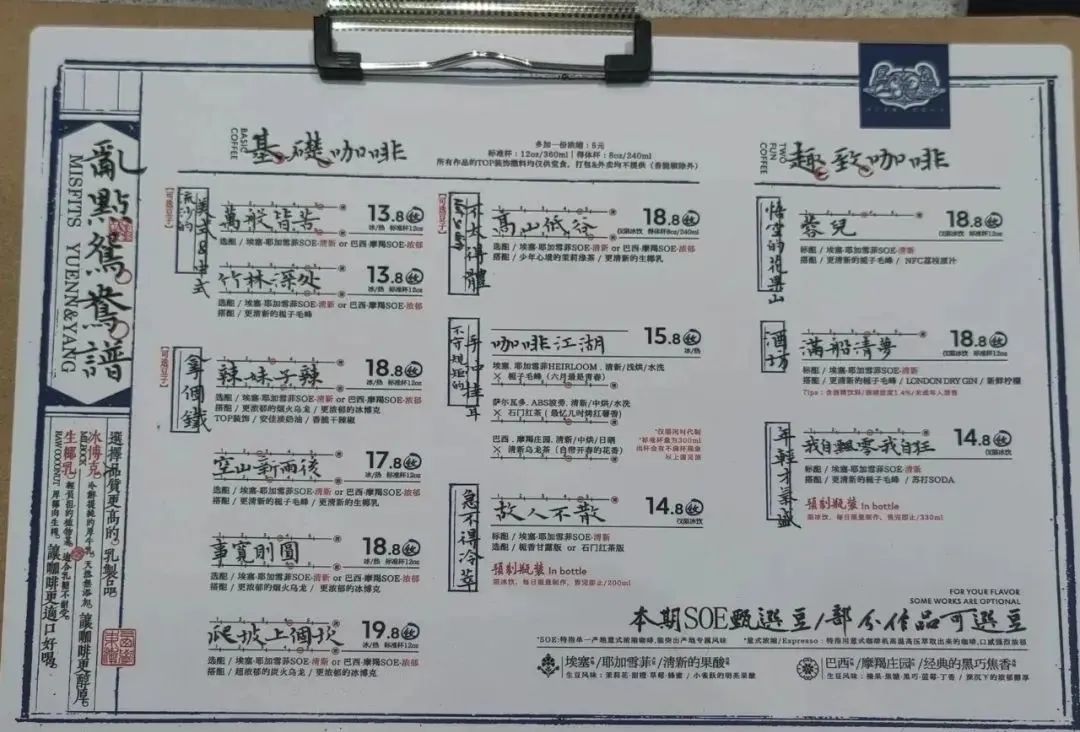 亂點鴛鴦譜
MISFITS YUENN&YANG
選擇品質更高的乳製品
冰博克
生椰乳
RAW COCONUT
讓咖啡更醇厚
讓咖啡更適口好喝
BASIC COFFEE
基礎咖啡
多加一份浓缩:5元
标准杯:12oz/360ml | 得体杯:8oz/240ml
所有作品的TOP装饰撒料均仅供堂食,打包&外卖均不提供(香脆椒除外)
【可选豆子】
美式&中式
萬般皆苦 13.8
冰/热 标准杯12oz
选配 / 埃塞·耶加雪菲SOE·清新 or 巴西·摩羯SOE·浓郁
竹林深处 13.8
冰/热 标准杯12oz
选配 / 埃塞·耶加雪菲SOE·清新 or 巴西·摩羯SOE·浓郁
搭配 / 更清新的栀子毛峰
【可选豆子】
拿個鐵
辣妹子辣 18.8
冰/热 标准杯12oz
选配 / 埃塞·耶加雪菲SOE·清新 or 巴西·摩羯SOE·浓郁
搭配 / 更浓郁的烟火乌龙 / 更浓郁的冰博克
TOP装饰 / 安佳淡奶油 / 香脆干辣椒
空山新雨後 17.8
冰/热 标准杯12oz
选配 / 埃塞·耶加雪菲SOE·清新 or 巴西·摩羯SOE·浓郁
搭配 / 更清新的栀子毛峰 / 更清新的生椰乳
事寬則圓 18.8
冰/热 标准杯12oz
选配 / 埃塞·耶加雪菲SOE·清新 or 巴西·摩羯SOE·浓郁
搭配 / 更浓郁的烟火乌龙 / 更浓郁的冰博克
爬坡上個坎 19.8
冰/热 标准杯12oz
选配 / 埃塞·耶加雪菲SOE·清新 or 巴西·摩羯SOE·浓郁
搭配 / 超浓郁的炭火乌龙 / 更浓郁的冰博克
【可选豆子】
不太得體
高山低谷 18.8
仅限冰饮 得体杯8oz/240ml
选配 / 埃塞·耶加雪菲SOE·清新 or 巴西·摩羯SOE·浓郁
搭配 / 少年心境的茉莉绿茶 / 更清新的生椰乳
不守规矩的
手中挂耳
咖啡江湖 15.8
冰/热
埃塞.耶加雪菲HEIRLOOM.清新/浅烘/水洗
× 栀子毛峰(六月最是青春)
萨尔瓦多.ABS波旁.清新/中烘/水洗
× 石门红茶(最忆儿时烤红薯香)
巴西.摩羯庄园.清新/中烘/日晒
× 清新乌龙茶(自带开春的花香)
*仅限闲时代制
*标准杯量为300ml
出杯会有不满杯现象
以上请见谅
急不得冷萃
故人不散 14.8
仅限冰饮
标配 / 埃塞·耶加雪菲SOE·清新
选配 / 栀香甘露版 or 石门红茶版
預制瓶裝 In bottle
限冰饮,每日限量制作,售完即止/200ml
TWO FUN COFFEE
趣致咖啡
悟空的花果山
蓉兒 18.8
仅限冰饮 标准杯12oz
标配 / 埃塞·耶加雪菲SOE·清新
搭配 / 更清新的栀子毛峰 / NFC荔枝原汁
酒坊
滿船清夢 18.8
仅限冰饮 标准杯12oz
标配 / 埃塞·耶加雪菲SOE·清新
搭配 / 更清新的栀子毛峰 / LONDON DRY GIN / 新鲜柠檬
Tips:含酒精饮料/酒精浓度1.4%/未成年人禁售
年輕才氣盛
我自飘零我自狂 14.8
仅限冰饮
标配 / 埃塞·耶加雪菲SOE·清新
搭配 / 更清新的栀子毛峰 / 苏打SODA
預制瓶裝 In bottle
限冰饮,每日限量制作,售完即止/330ml
FOR YOUR FLAVOR
SOME WORKS ARE OPTIONAL
本期SOE甄選豆/部分作品可選豆
*SOE:特指单一产地意式浓缩咖啡,强突出产地专属风味 *意式浓缩/Espresso:特指用意式咖啡机高温高压萃取出来的咖啡,口感强烈浓郁
埃塞/耶加雪菲/清新的果酸
生豆风味:茉莉花·甜橙·草莓·蜂蜜 / 小雀跃的明亮果酸
巴西/摩羯庄园/经典的黑巧焦香
生豆风味:榛果·焦糖·黑巧·蓝莓·丁香 / 深沉下的浓郁醇厚